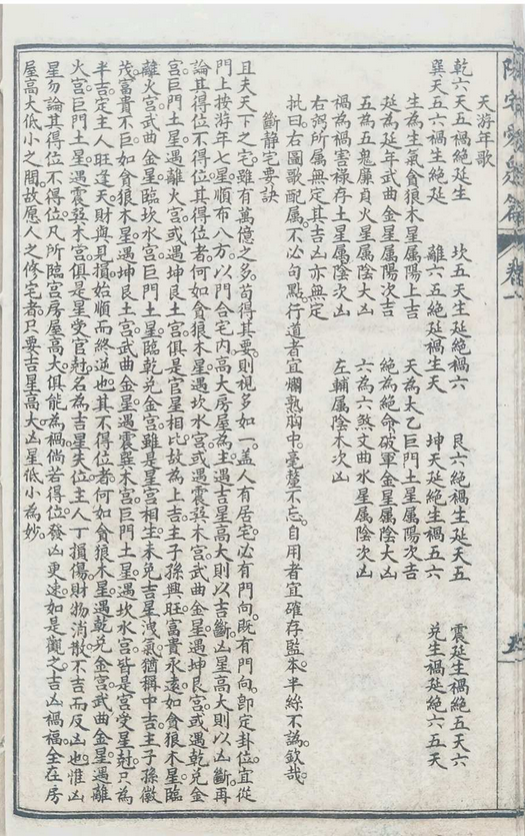 天游年歌
乾六天五禍絕延生　坎五天生延絕禍六　艮六絕禍生延天五　震延生禍絕五天六
巽天五六禍生絕延　離六五絕延禍生天　坤天延絕生禍五六　兌生禍延絕六五天
生為生氣貪狼木星屬陽上吉　天為太乙巨門土星屬陽次吉
延為延年武曲金星屬陽次吉　絕為絕命破軍金星屬陰大凶
五為五鬼廉貞火星屬陰大凶　六為六煞文曲水星屬陰次凶
禍為禍害祿存土星屬陰次凶　左輔屬陰木次凶
右弼所屬無定其吉凶亦無定
批曰右圖歌配屬不必句點行道者宜爛熟胸中毫釐不忘自用者宜確存監本半絲不譌欽哉
斷靜宅要訣
且夫天下之宅雖有萬億之多苟得其要則視多如一蓋人有居宅必有門向既有門向卽定卦位宜從
門上按游年七星順布八方以門合宅內高大房屋為主遇吉星高大則以吉斷凶星高大則以凶斷再
論其得位不得位其得位者何如貪狼木星遇坎水宮或遇震巽木宮武曲金星遇坤艮宮或遇乾兌金
宮巨門土星遇離火宮或遇坤艮土宮俱是官星相比故為上吉主子孫興旺富貴永遠如貪狼木星臨
離火宮武曲金星臨坎水宮巨門土星臨乾兌金宮雖是星宮相生未免吉星洩氣猶稱中吉主子孫徽
茂富貴不巨如貪狼木星遇坤艮土宮武曲金星遇震巽木宮巨門土星遇坎水宮皆是宮受星尅只為
半吉定主人旺逢天財與見損始順而終逆也其不得位者何如貪狼木星遇乾兌金宮武曲金星遇離
火宮巨門土星遇震巽木宮俱是星受宮尅名為吉星失位主人丁損傷財物消散不吉而反凶也惟凶
星勿論其得位不得位凡所臨宮房屋高大俱能為禍倘若得位發凶更速如是觀之吉凶禍福全在房
屋高大低小之間故愿人之修宅者只要吉星高大凶星低小為妙